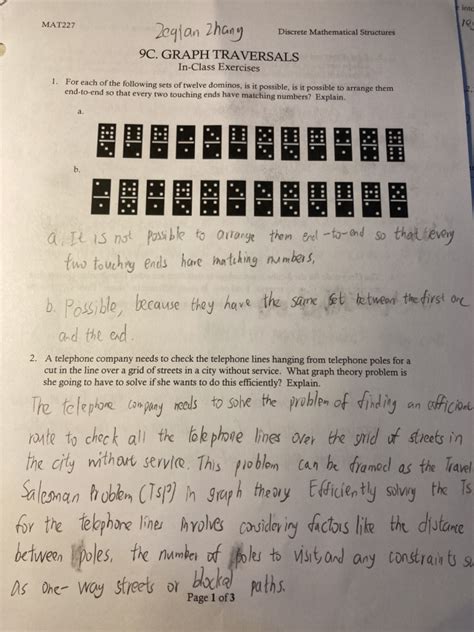 MAT227
Zeqian Zhang
Discrete Mathematical Structures
9C. GRAPH TRAVERSALS
In-Class Exercises
1. For each of the following sets of twelve dominos, is it possible, is it possible to arrange them
end-to-end so that every two touching ends have matching numbers? Explain.
a.
b.
a. It is not possible to arrange them end-to-end so that every
two touching ends have matching numbers,
b. Possible, because they have the same set between the first one
and the end.
2. A telephone company needs to check the telephone lines hanging from telephone poles for a
cut in the line over a grid of streets in a city without service. What graph theory problem is
she going to have to solve if she wants to do this efficiently? Explain.
The telephone company needs to solve the problem of finding an efficient
route to check all the telephone lines over the grid of streets in
the city without service. This problem can be framed as the Travel
Salesman Problem (TSP) in graph theory Efficiently solving the TS
for the telephone lines involves considering factors like the distance
between poles, the number of poles to visit, and any constraints su
as one-way streets or blocked paths.
Page 1 of 3